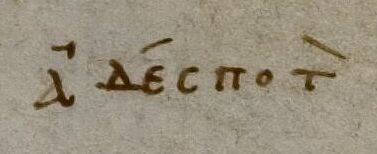 ἀδέσποτ̀